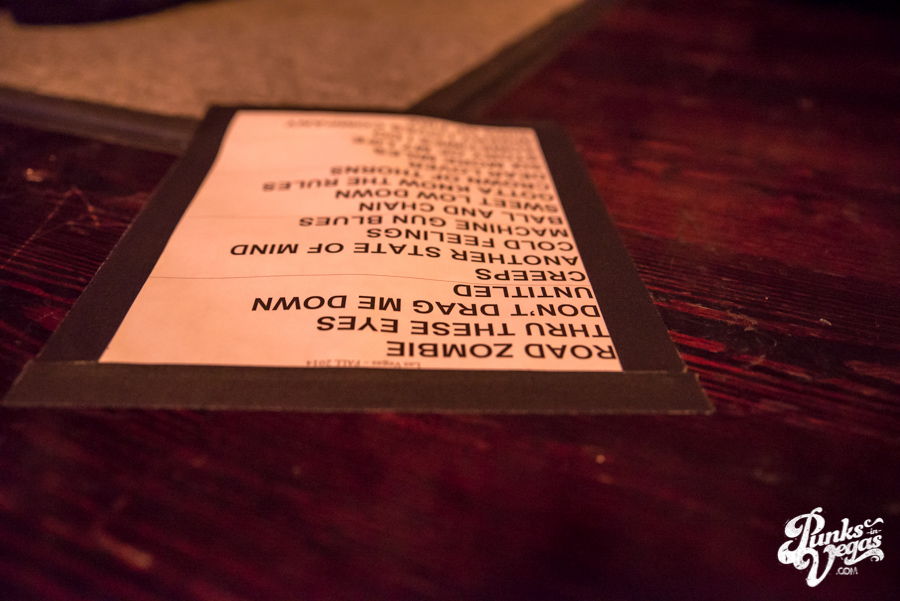 Las Vegas - FALL 2014
ROAD ZOMBIE
THRU THESE EYES
DON'T DRAG ME DOWN
UNTITLED
CREEPS
ANOTHER STATE OF MIND
COLD FEELINGS
MACHINE GUN BLUES
BALL AND CHAIN
SWEET LOW DOWN
GOTTA KNOW THE RULES
CROWN OF THORNS
Punks
-in-
Vegas
.COM